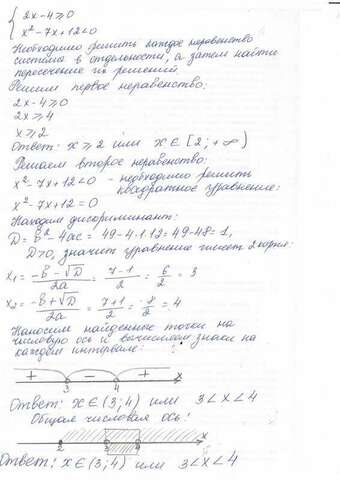 { 2x-4≥0
x²-7x+12<0
Необходимо решить каждое неравенство
система в отдельности, а затем найти
пересечение их решений.
Решим первое неравенство:
2x-4≥0
2x≥4
x≥2
Ответ: x≥2 или x∈[2;+∞)
Решаем второе неравенство:
x²-7x+12<0 - необходимо решить
квадратное уравнение:
x²-7x+12=0
Находим дискриминант:
D=b²-4ac = 49-4·1·12=49-48=1,
D>0, значит уравнение имеет 2 корня:
x₁ = (-b-√D)/2a = (7-1)/2 = 6/2 = 3
x₂ = (-b+√D)/2a = (7+1)/2 = 8/2 = 4
Наносим найденные точки на
числовую ось и вычисляем знаки на
каждом интервале:
+ - +
3 4 x
Ответ: x∈(3;4) или 3<x<4
Общая числовая ось:
2 3 4 x
Ответ: x∈(3;4) или 3<x<4